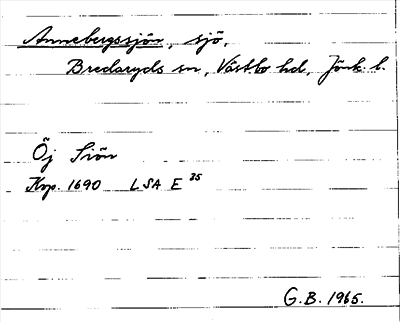 Annebergssjön, sjö,
Bredaryds sn, Västbo hd, Jönk. l.
Öj Siön
Kop. 1690 LSA E 35
G.B. 1965.